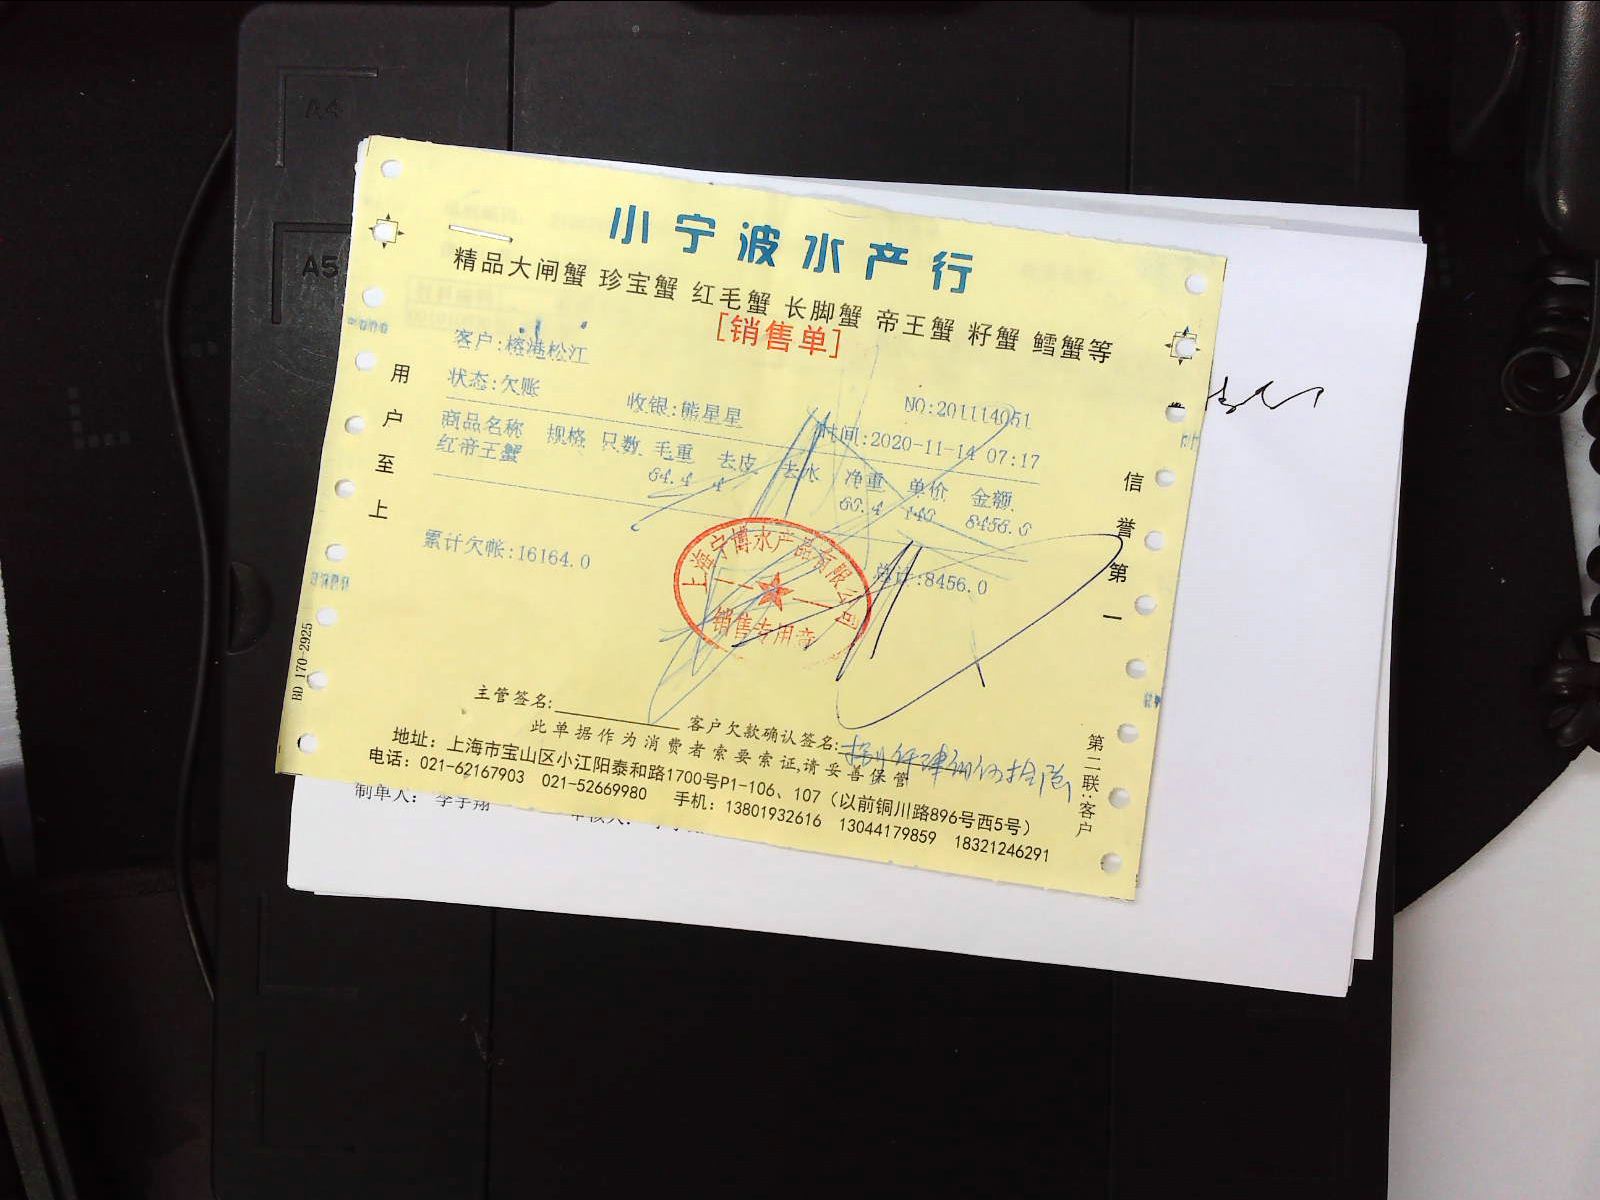 小宁波水产行
精品大闸蟹 珍宝蟹 红毛蟹 长脚蟹 帝王蟹 籽蟹 鳕蟹等
[销售单]
客户:榕港松江
状态:欠账
收银:熊星星
NO:201114051
时间:2020-11-14 07:17
商品名称 规格 只数 毛重 去皮 去水 净重 单价 金额
红帝王蟹 64.4 4 60.4 140 8456.0
累计欠帐:16164.0
总计:8456.0
上海宁博水产品有限公司
销售专用章
用户至上
信誉第一
BD 170-2925
主管签名:
客户欠款确认签名:
此单据作为消费者索要索证,请妥善保管
地址：上海市宝山区小江阳泰和路1700号P1-106、107（以前铜川路896号西5号）
电话：021-62167903 021-52669980 手机：13801932616 13044179859 18321246291
第二联:客户
制单人：李宇翔
A4
A5